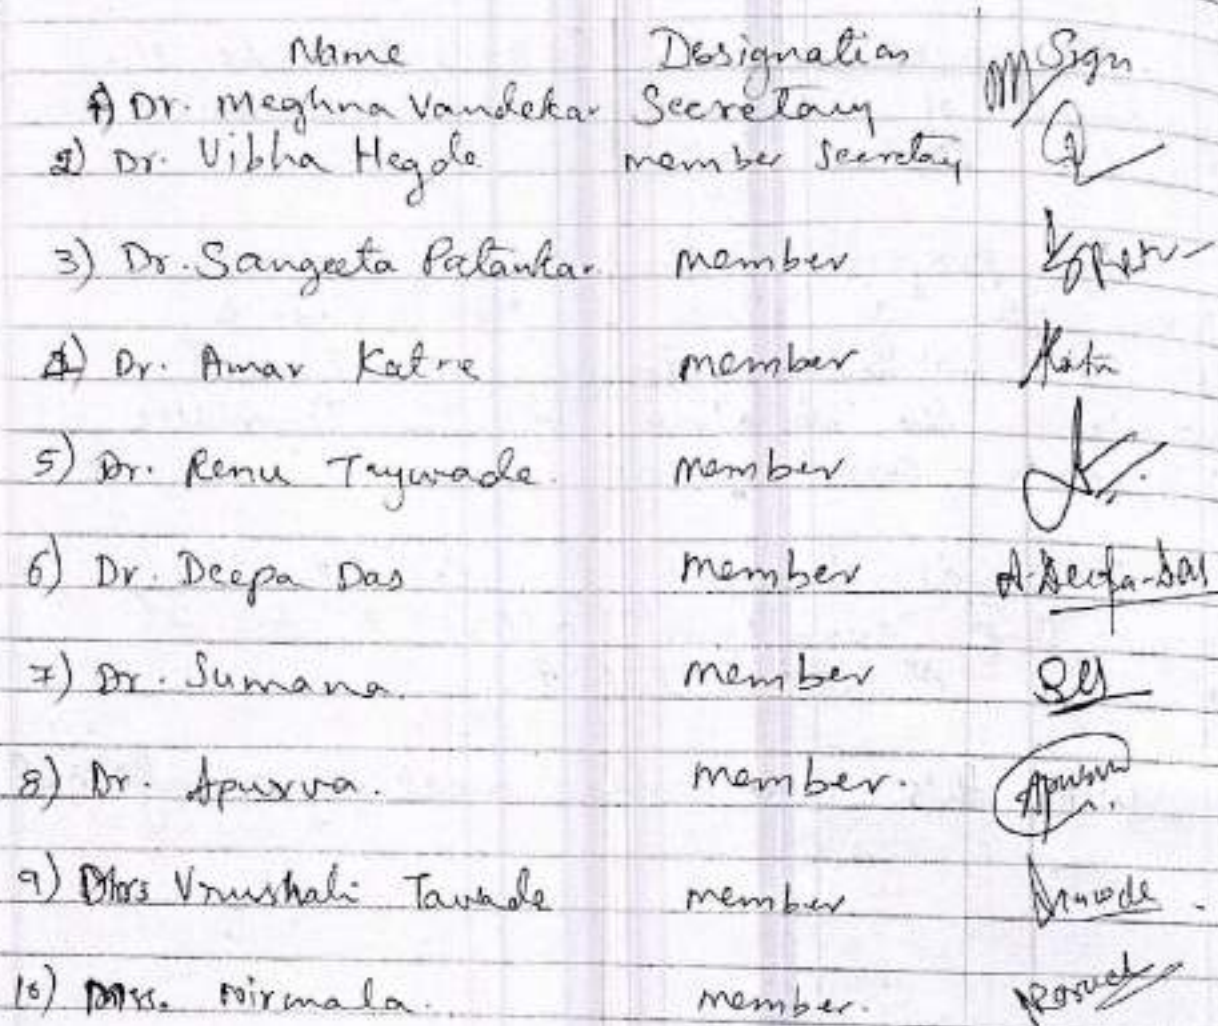 Name Designation Sign
1) Dr. Meghna Vandekar Secretary
2) Dr. Vibha Hegde member Secretary
3) Dr. Sangeeta Patankar. member
4) Dr. Amar Katre member
5) Dr. Renu Taywade. member
6) Dr. Deepa Das member A. Deepa-Das
7) Dr. Sumana. member
8) Dr. Apurva. member. Apurva
9) Mrs Vrushali Tawade member.
10) Mrs. Nirmala. member.